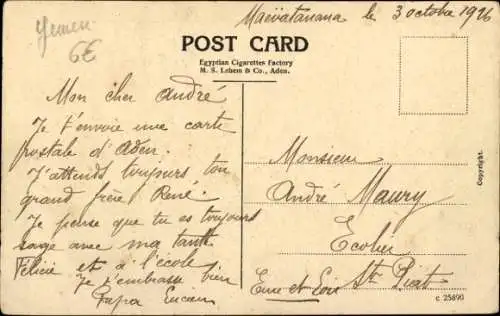 Yemen
6€
Maevatanana le 3 octobre 1916
POST CARD
Egyptian Cigarettes Factory
M. S. Lehem & Co., Aden.
Mon cher André
Je t'envoie une carte
postale d'Aden.
J'attends toujours ton
grand frère René.
Je pense que tu es toujours
sage avec ma tante
Félicie et à l'école
Je t'embrasse bien
Papa Lucien
Monsieur
André Maury
Ecolier
St Piat
Eure et Loir
Copyright.
c 25890